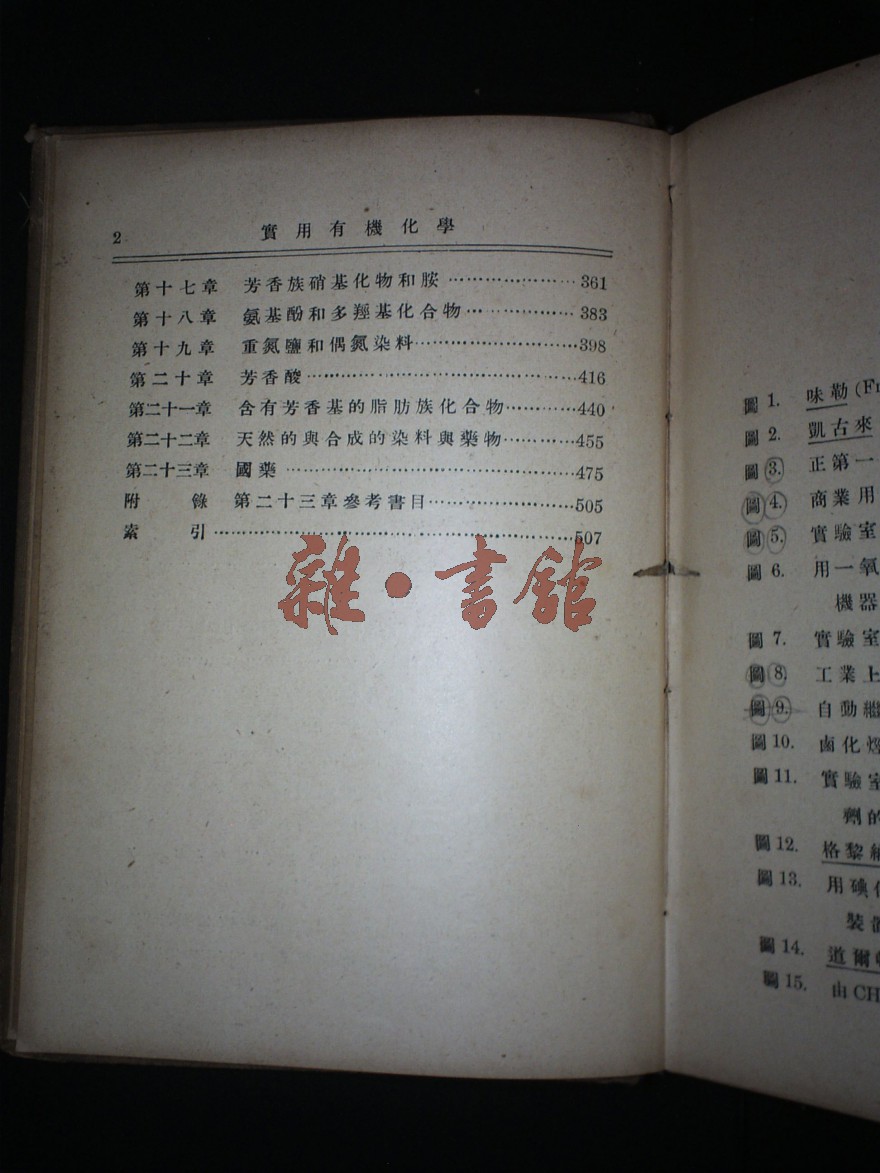 2 實用有機化學
第十七章 芳香族硝基化物和胺………………… 361
第十八章 氨基酚和多羥基化合物……………… 383
第十九章 重氮鹽和偶氮染料……………………398
第二十章 芳香酸…………………………………416
第二十一章 含有芳香基的脂肪族化合物…………440
第二十二章 天然的與合成的染料與藥物…………455
第二十三章 國藥……………………………………475
附 錄 第二十三章參考書目…………………505
索 引………………………………………………507
雜·書館
圖 1. 味勒
圖 2. 凱古來
圖 3. 正第一
圖 4. 商業用
圖 5. 實驗室
圖 6. 用一氧
機器
圖 7. 實驗室
圖 8. 工業上
圖 9. 自動繼
圖 10. 鹵化
圖 11. 實驗室
劑的
圖 12. 格黎
圖 13. 用碘
裝
圖 14. 道爾
圖 15. 由CH